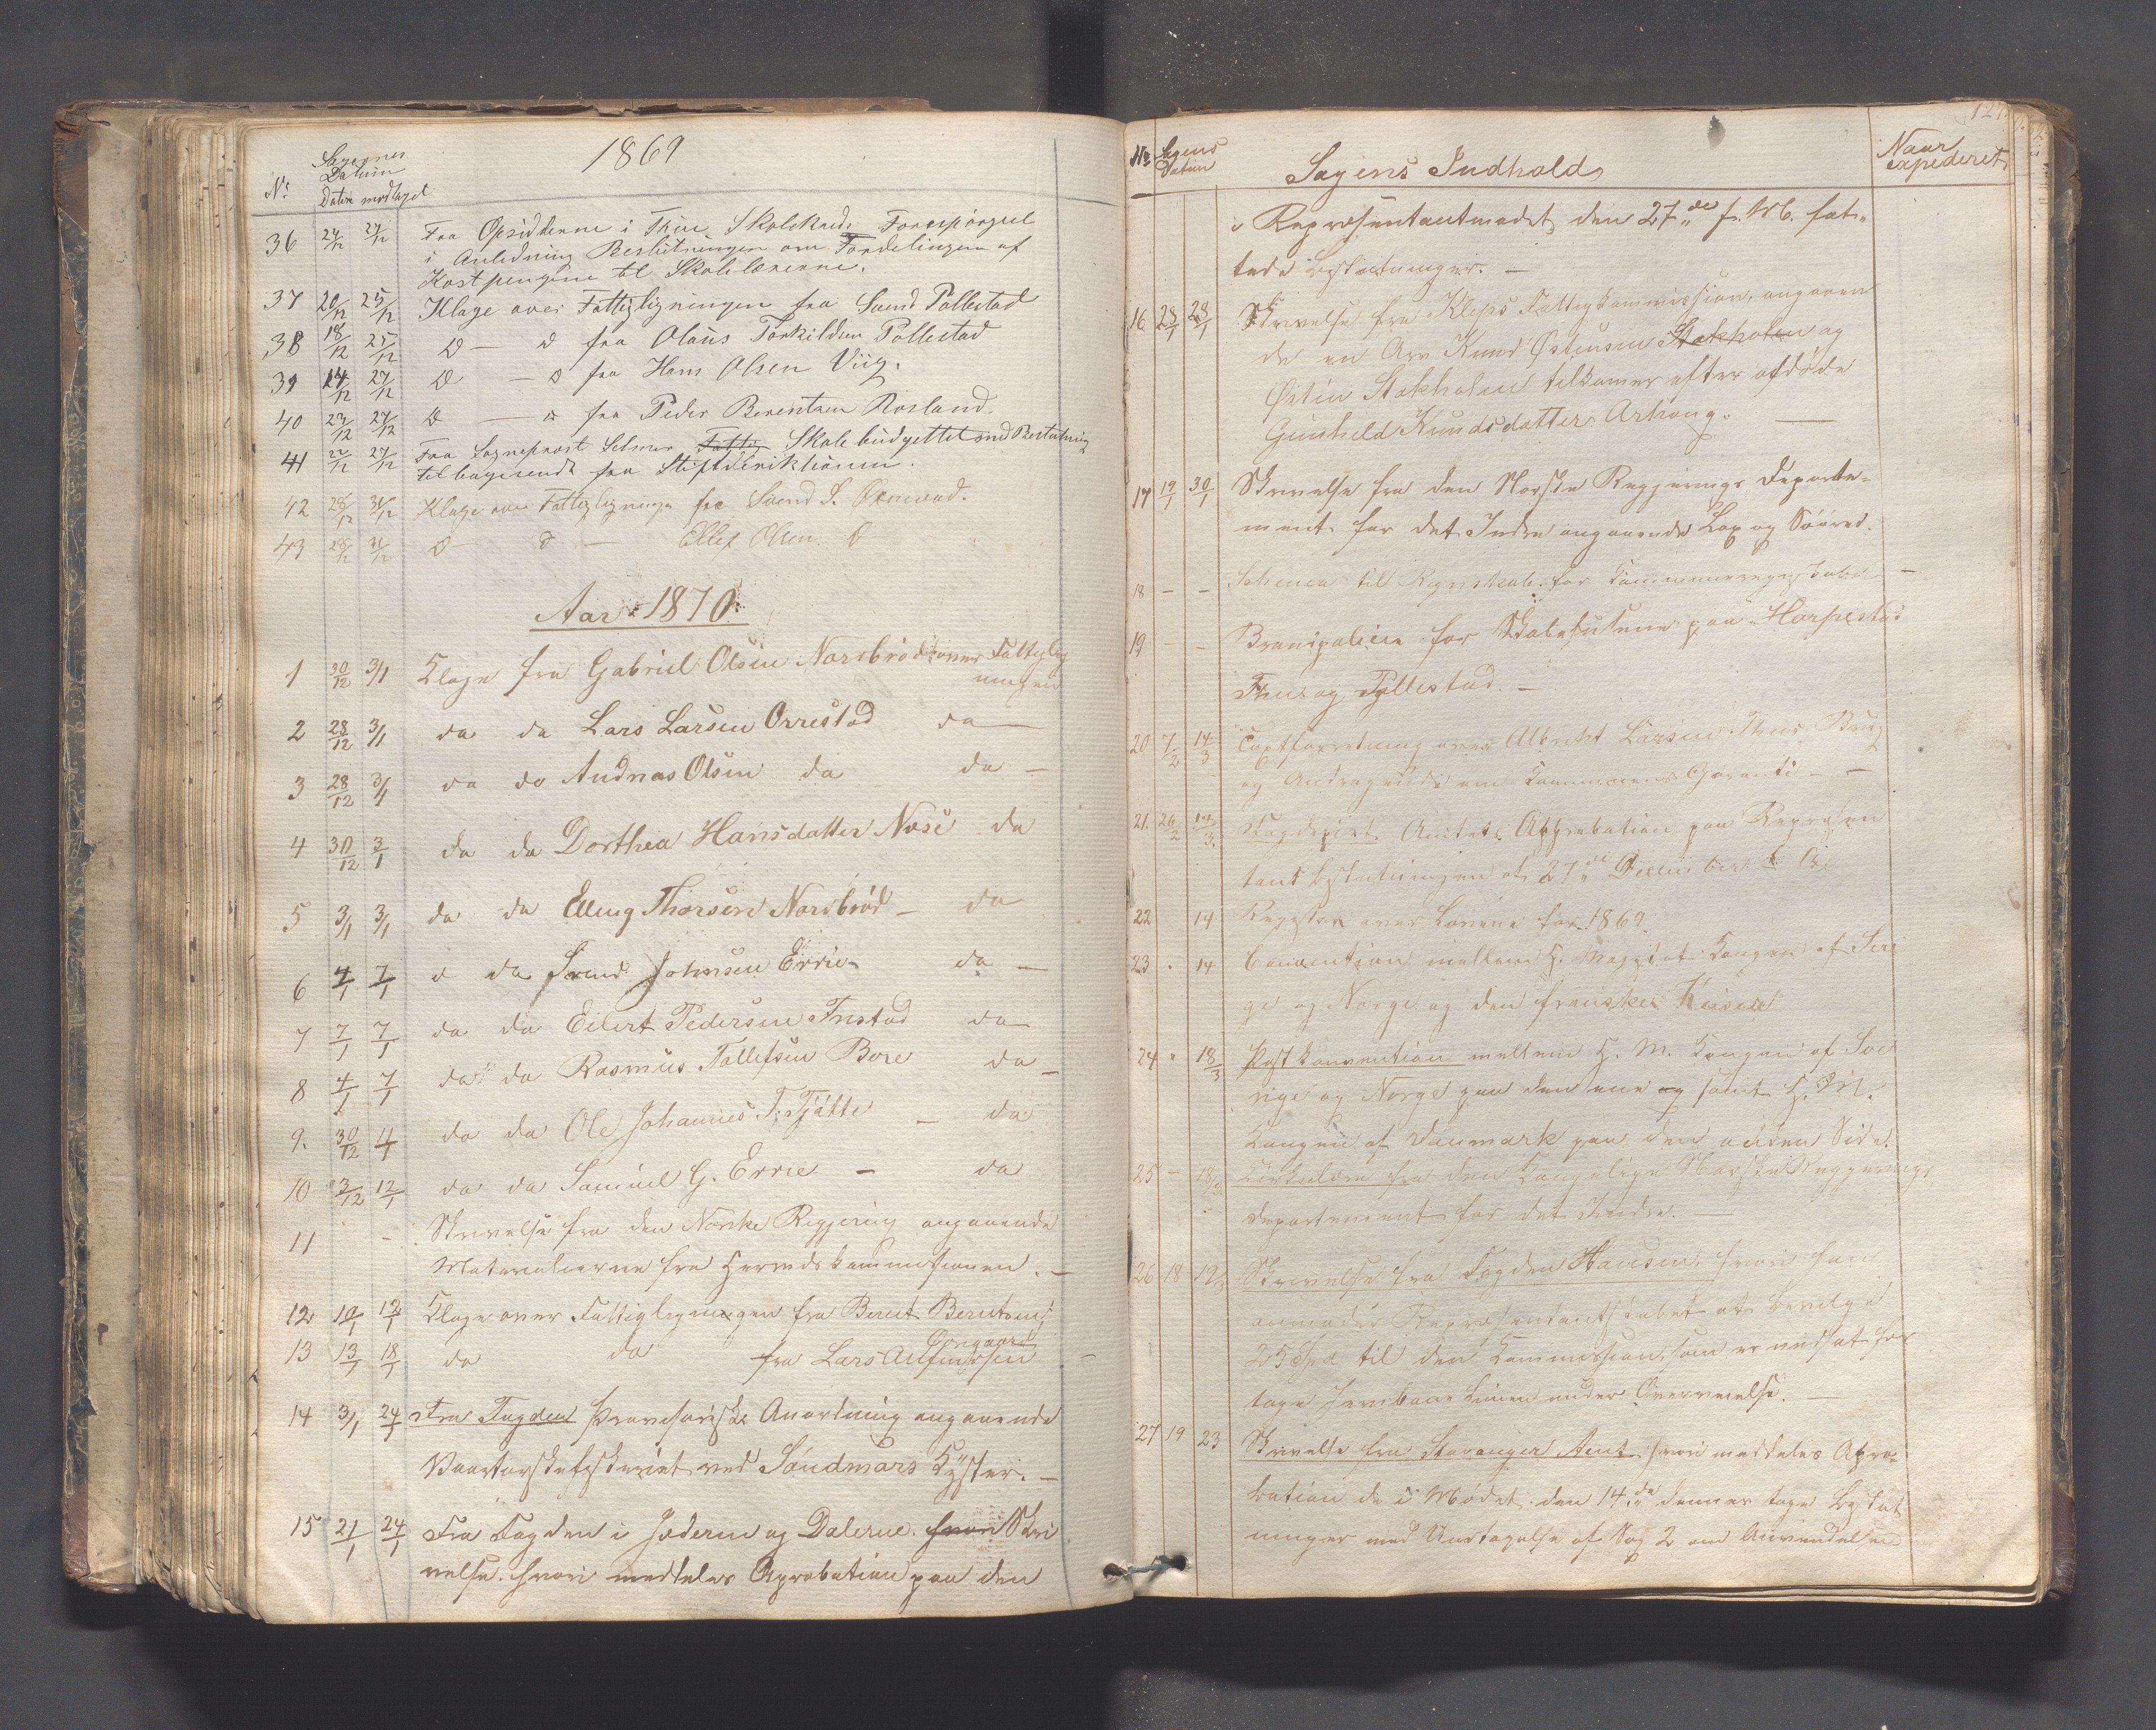 1869
Sagernes
Datum
No Datum modtaget
36 24/12 24/12 Fra Opsidderne i Thu Skolekreds Forespörgsel
i Anledning Beslutningen om Fordelingen af
Kostpengene til Skolelærerne.
37 20/12 25/12 Klage over Fattigligningen fra Svend Pollestad
38 18/12 25/12 D — D fra Olaus Torkildsen Pollestad
39 24/12 27/12 D — D fra Hans Olsen Viig.
40 23/12 27/12 D — D fra Peder Berentsen Rosland.
41 22/12 27/12 Fra Sogneprest Selmer Skolebudgettet med Beslutning
tilbagesendt fra Stiftsdirektionen.
42 28/12 31/12 Klage over Fattigligningen fra Svend S.
43 28/12 31/12 D — D — Ellef Olsen D
Aar 1870.
1 30/12 3/1 Klage fra Gabriel Olsen Nordbröd over Fattiglig
ningen
2 28/12 3/1 do do Lars Larsen Orrestad do —
3 28/12 3/1 do do Andreas Olsen do do —
4 30/12 3/1 do do Dorthea Hansdatter Næse do
5 3/1 3/1 do do Elling Thorsen Nordbröd — do
6 4/1 7/1 d do Svend Johnsen Errie do —
7 7/1 7/1 do do Eilert Pedersen Tustad do
8 4/1 7/1 do do Rasmus Tollefsen Bore do —
9. 30/12 4 do do Ole Johannes T. Tjøtte — do
10 3/12 12/1 do do Samuel G. Errie — do
11 - Skrivelse fra den Norske Regjering angaaende
Materialierne fra Herredskommissionen. —
12 10/1 12/1 Klage over Fattigligningen fra Berent Berentsens
13 13/1 18/1 do do fra Lars —
14 3/1 24/1 Fra Fogden Provisorisk Anordning angaaende
Vaartorskefiskeriet ved Söndmörs Kyster. —
15 21/1 24/1 Fra Fogden i Jæderen og Dalerne. hvori Skri
velse hvori meddeles Aprobation paa den
No Sagens
Datum Sagens Indhold Naar
expederet
i Repræsentantmødet den 27de f. M. fat-
tede Beslutninger. —
16 28/1 28/1 Skrivelse fra Kleps Fattigkommission, angaaen
de en Arv Knud Østensen Stokholm og
Østen Stokholm tilkomer efter afdøde
Gunhild Knudsdatter —
17 19/1 30/1 Skrivelse fra den Norske Regjerings Departe-
ment for det Indre angaaende Lax og Söörret.
18 — — Schema til Regnskab for —
19 — — Brandpolicer for Skolehusene paa Harpestad
Thu og Pollestad. —
20 7/2 14/3 Taxtforretning over Albricht Larsen Thus Brug
og Andragende om Kommunens Garanti — —
21. 26/2 14/3. Amtets Approbation paa Repræsen
tant Beslutningen af 27de December f. A.
22 14 Register over Lovene for 1869.
23 . 14 Convention mellem H. Majestæt Kongen af Sver
ge og Norge og den franske Keiser
24 " 18/3 Postkonvention mellem H. M. Kongen af Sve
rige og Norge paa den ene og samt H. M.
Kongen af Danmark paa den anden Side.
25 — 18/3 Cirkulære fra den Kongelige Norske Regjerings
Departement for det Indre. —
26 18 19 Skrivelse fra Fogden Hansen, hvori han
anmoder Repræsentantskabet at bevilge
25 Spd til den Kommission, som er nedsat for
tage Jernbane Linien under Overveielse. —
27 19 23 Skrivelse fra Stavanger Amt hvori meddeles Apro-
bation de i Mødet den 14de dennes tagne Beslut
ninger med Undtagelse af Sag 2 om Anvendelsen